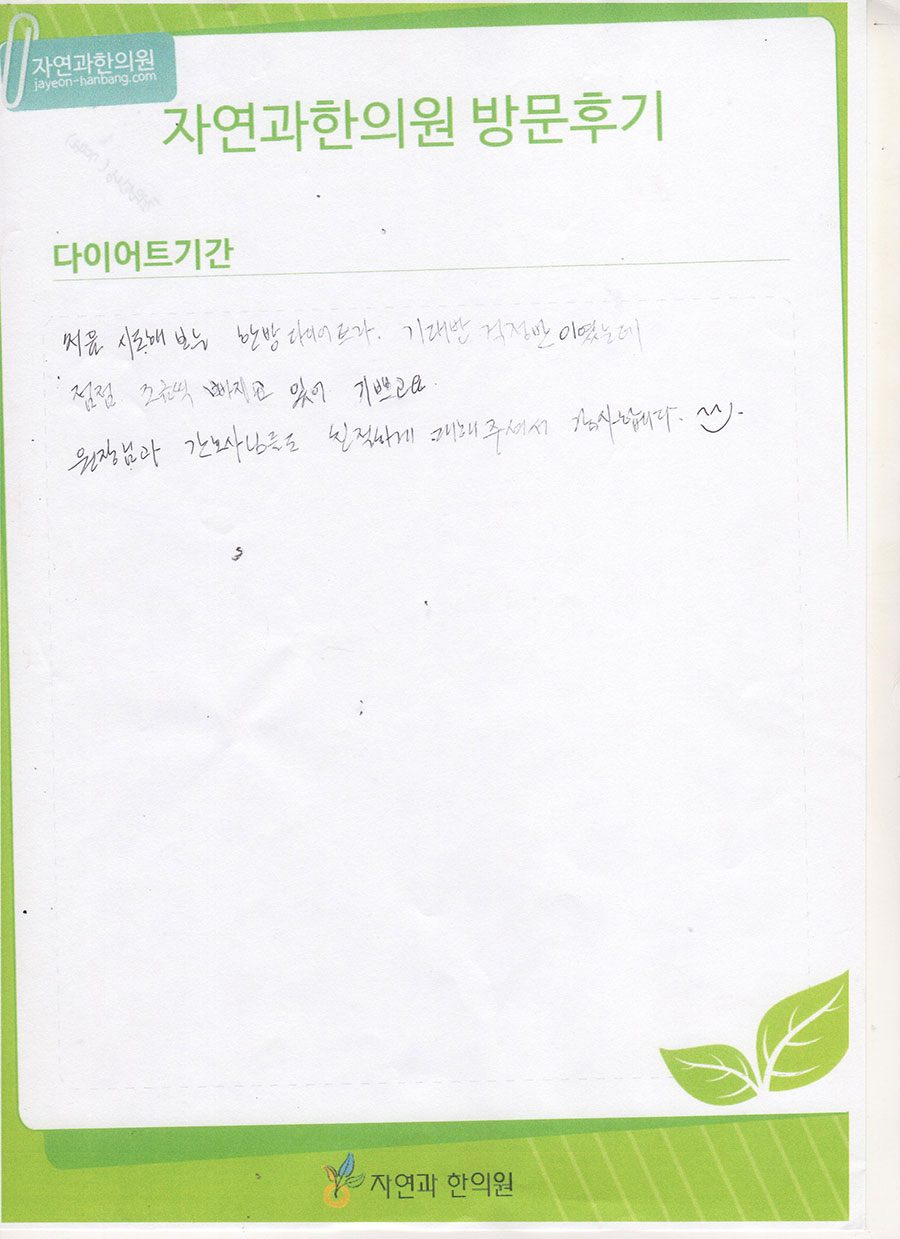 자연과한의원
jayeon-hanbang.com
자연과한의원 방문후기
다이어트기간
처음 시도해 보는 한방다이어트라. 기대반 걱정반이였는데
점점 조금씩 빠지고 있어 기쁘고요.
원장님과 간호사님들도 친절하게 대해주셔서 감사합니다.
자연과 한의원